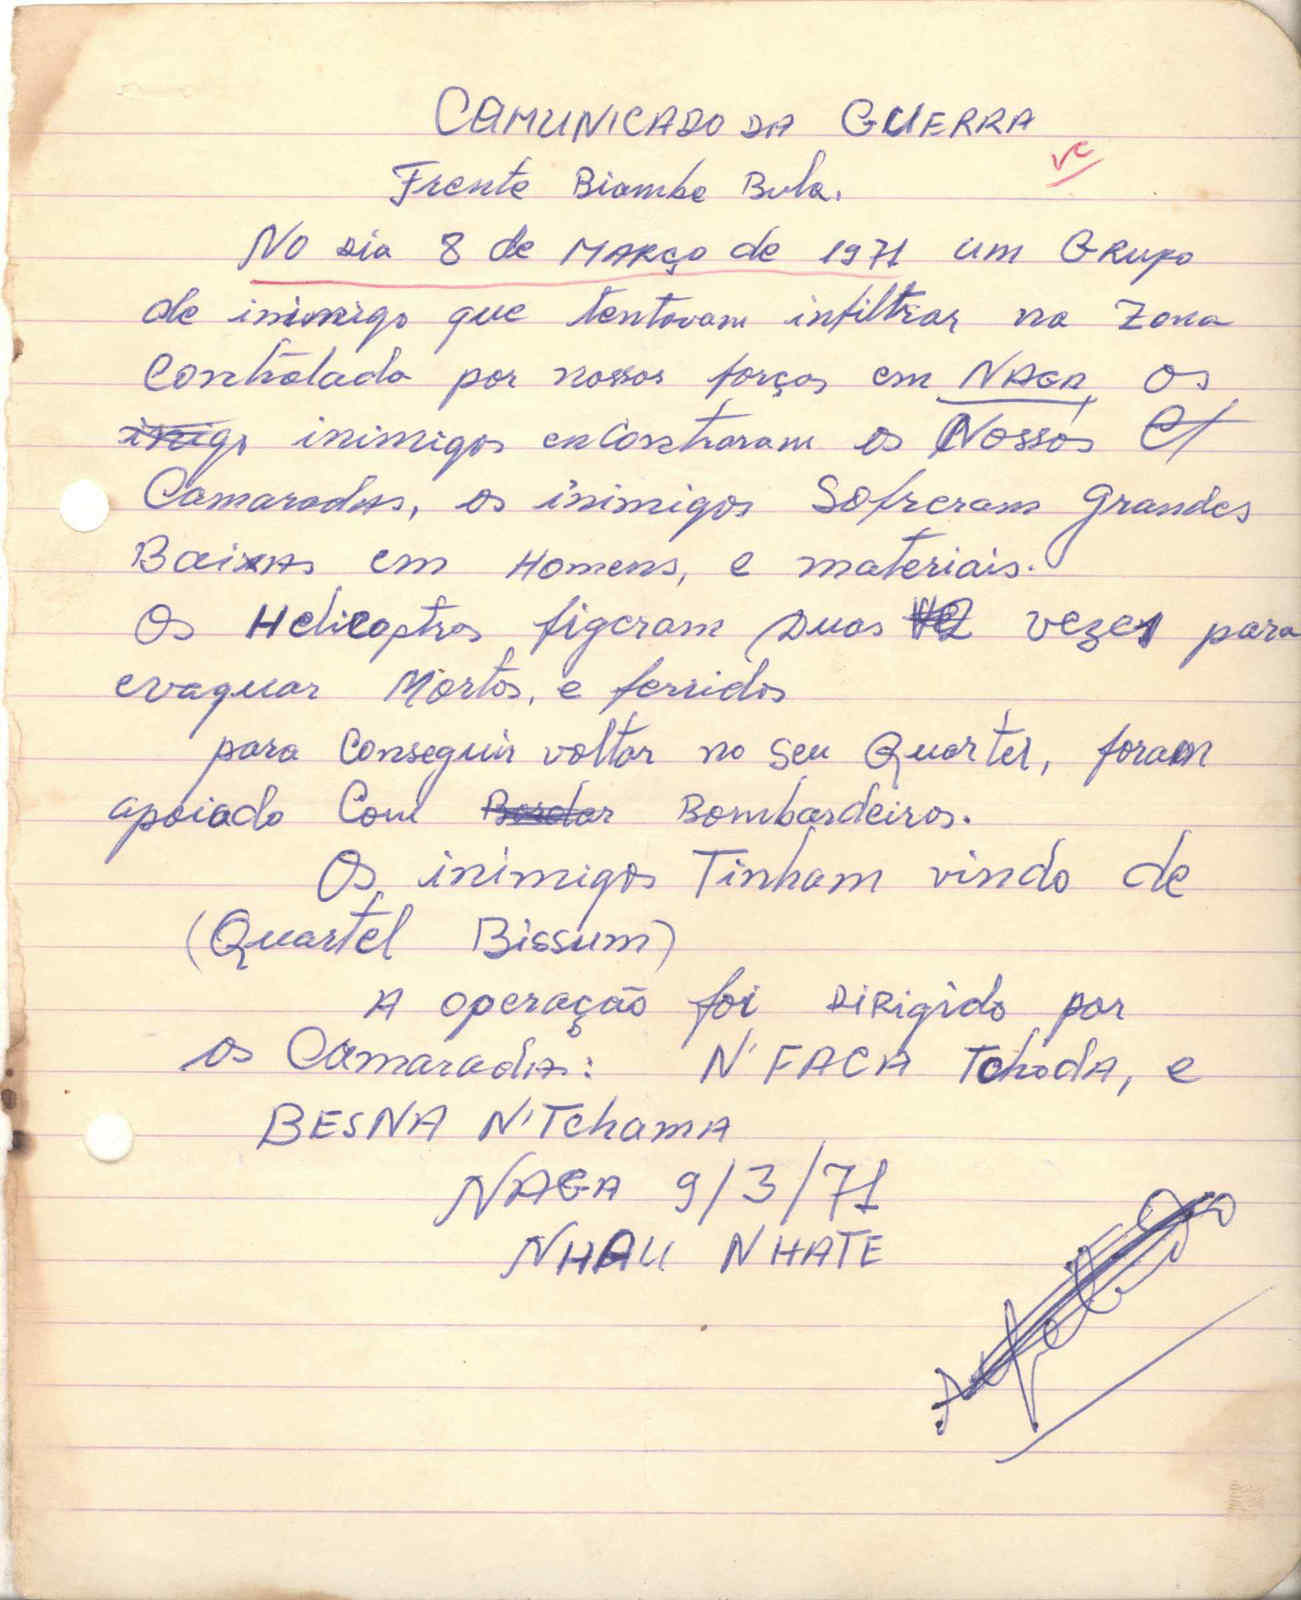 COMUNICADO DA GUERRA
Frente Biambe Bula.
NO Dia 8 de MARÇO de 1971 um GRUPO
de inimigo que tentavam infiltrar na Zona
Contrôlado por nossos forças em NAGA, os
inimigos encontraram os Nossos
Camaradas, os inimigos Sofreram grandes
BaixAs em Homens, e materiais.
Os Helicoptros figeram Duas vezes para
evaquar Mortos, e ferridos
para Conseguir voltar no seu Quartel, foram
apoiado Com Bombardeiros.
Os inimigos Tinham vindo de
(Quartel Bissum)
A operação foi DiRigido por
os CamaradA: N'FACA TchodA, e
BESNA N'TchamA
NAGA 9/3/71
NHAU NHATE